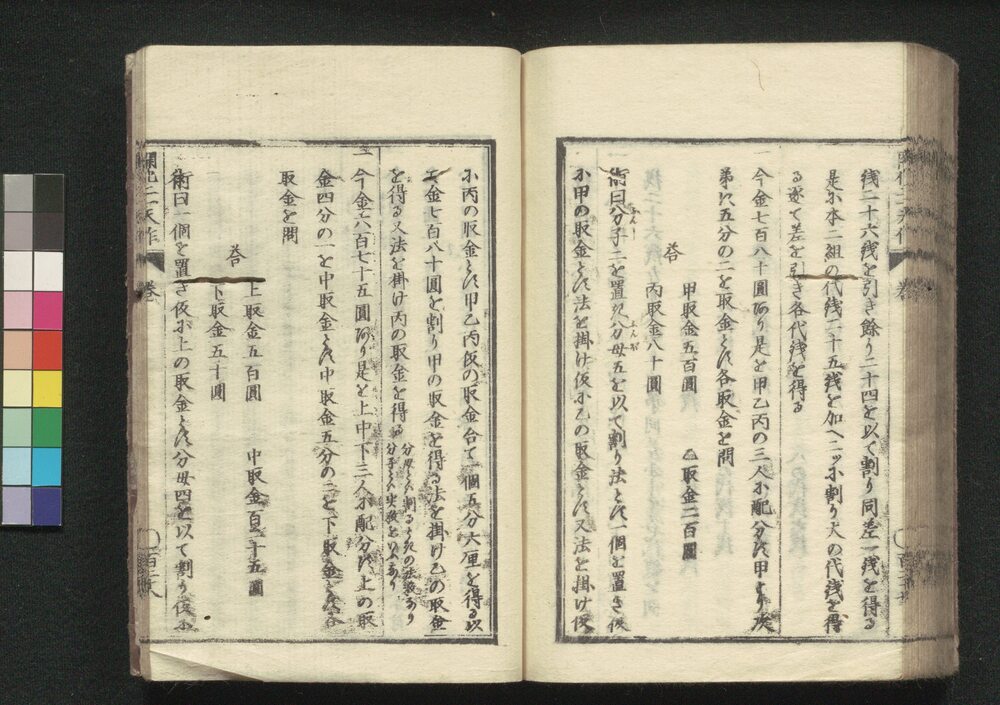 銭二十六銭を引き餘り二十四を以て割り同差一銭を得る
是に本二組の代銭二十五銭を加へ二ッに割り大の代銭を得
る逐て差を引き各代銭を得る
一 今金七百八十圓あり是を甲乙丙の三人に配分す甲より次
第に五分の二を取金とす各取金を問
答 甲取金五百圓 乙取金二百圓
丙取金八十圓
術曰分子二を置き分母五を以て割り法とす一個を置き仮
に甲の取金とす法を掛け仮に乙の取金とす又法を掛け仮
に丙の取金とす甲乙丙仮の取金合て一個五分六厘を得る以
て金七百八十圓を割り甲の取金を得る法を掛け乙の取金
を得る又法を掛け丙の取金を得る
一 今金六百七十五圓あり是を上中下三人に配分す上の取
金四分の一を中取金とす中取金五分の二を下取金とす各
取金を問
答 上取金五百圓 中取金百二十五圓
下取金五十圓
術曰一個を置き仮に上の取金とす分母四を以て割り仮に
開化二一天作 巻